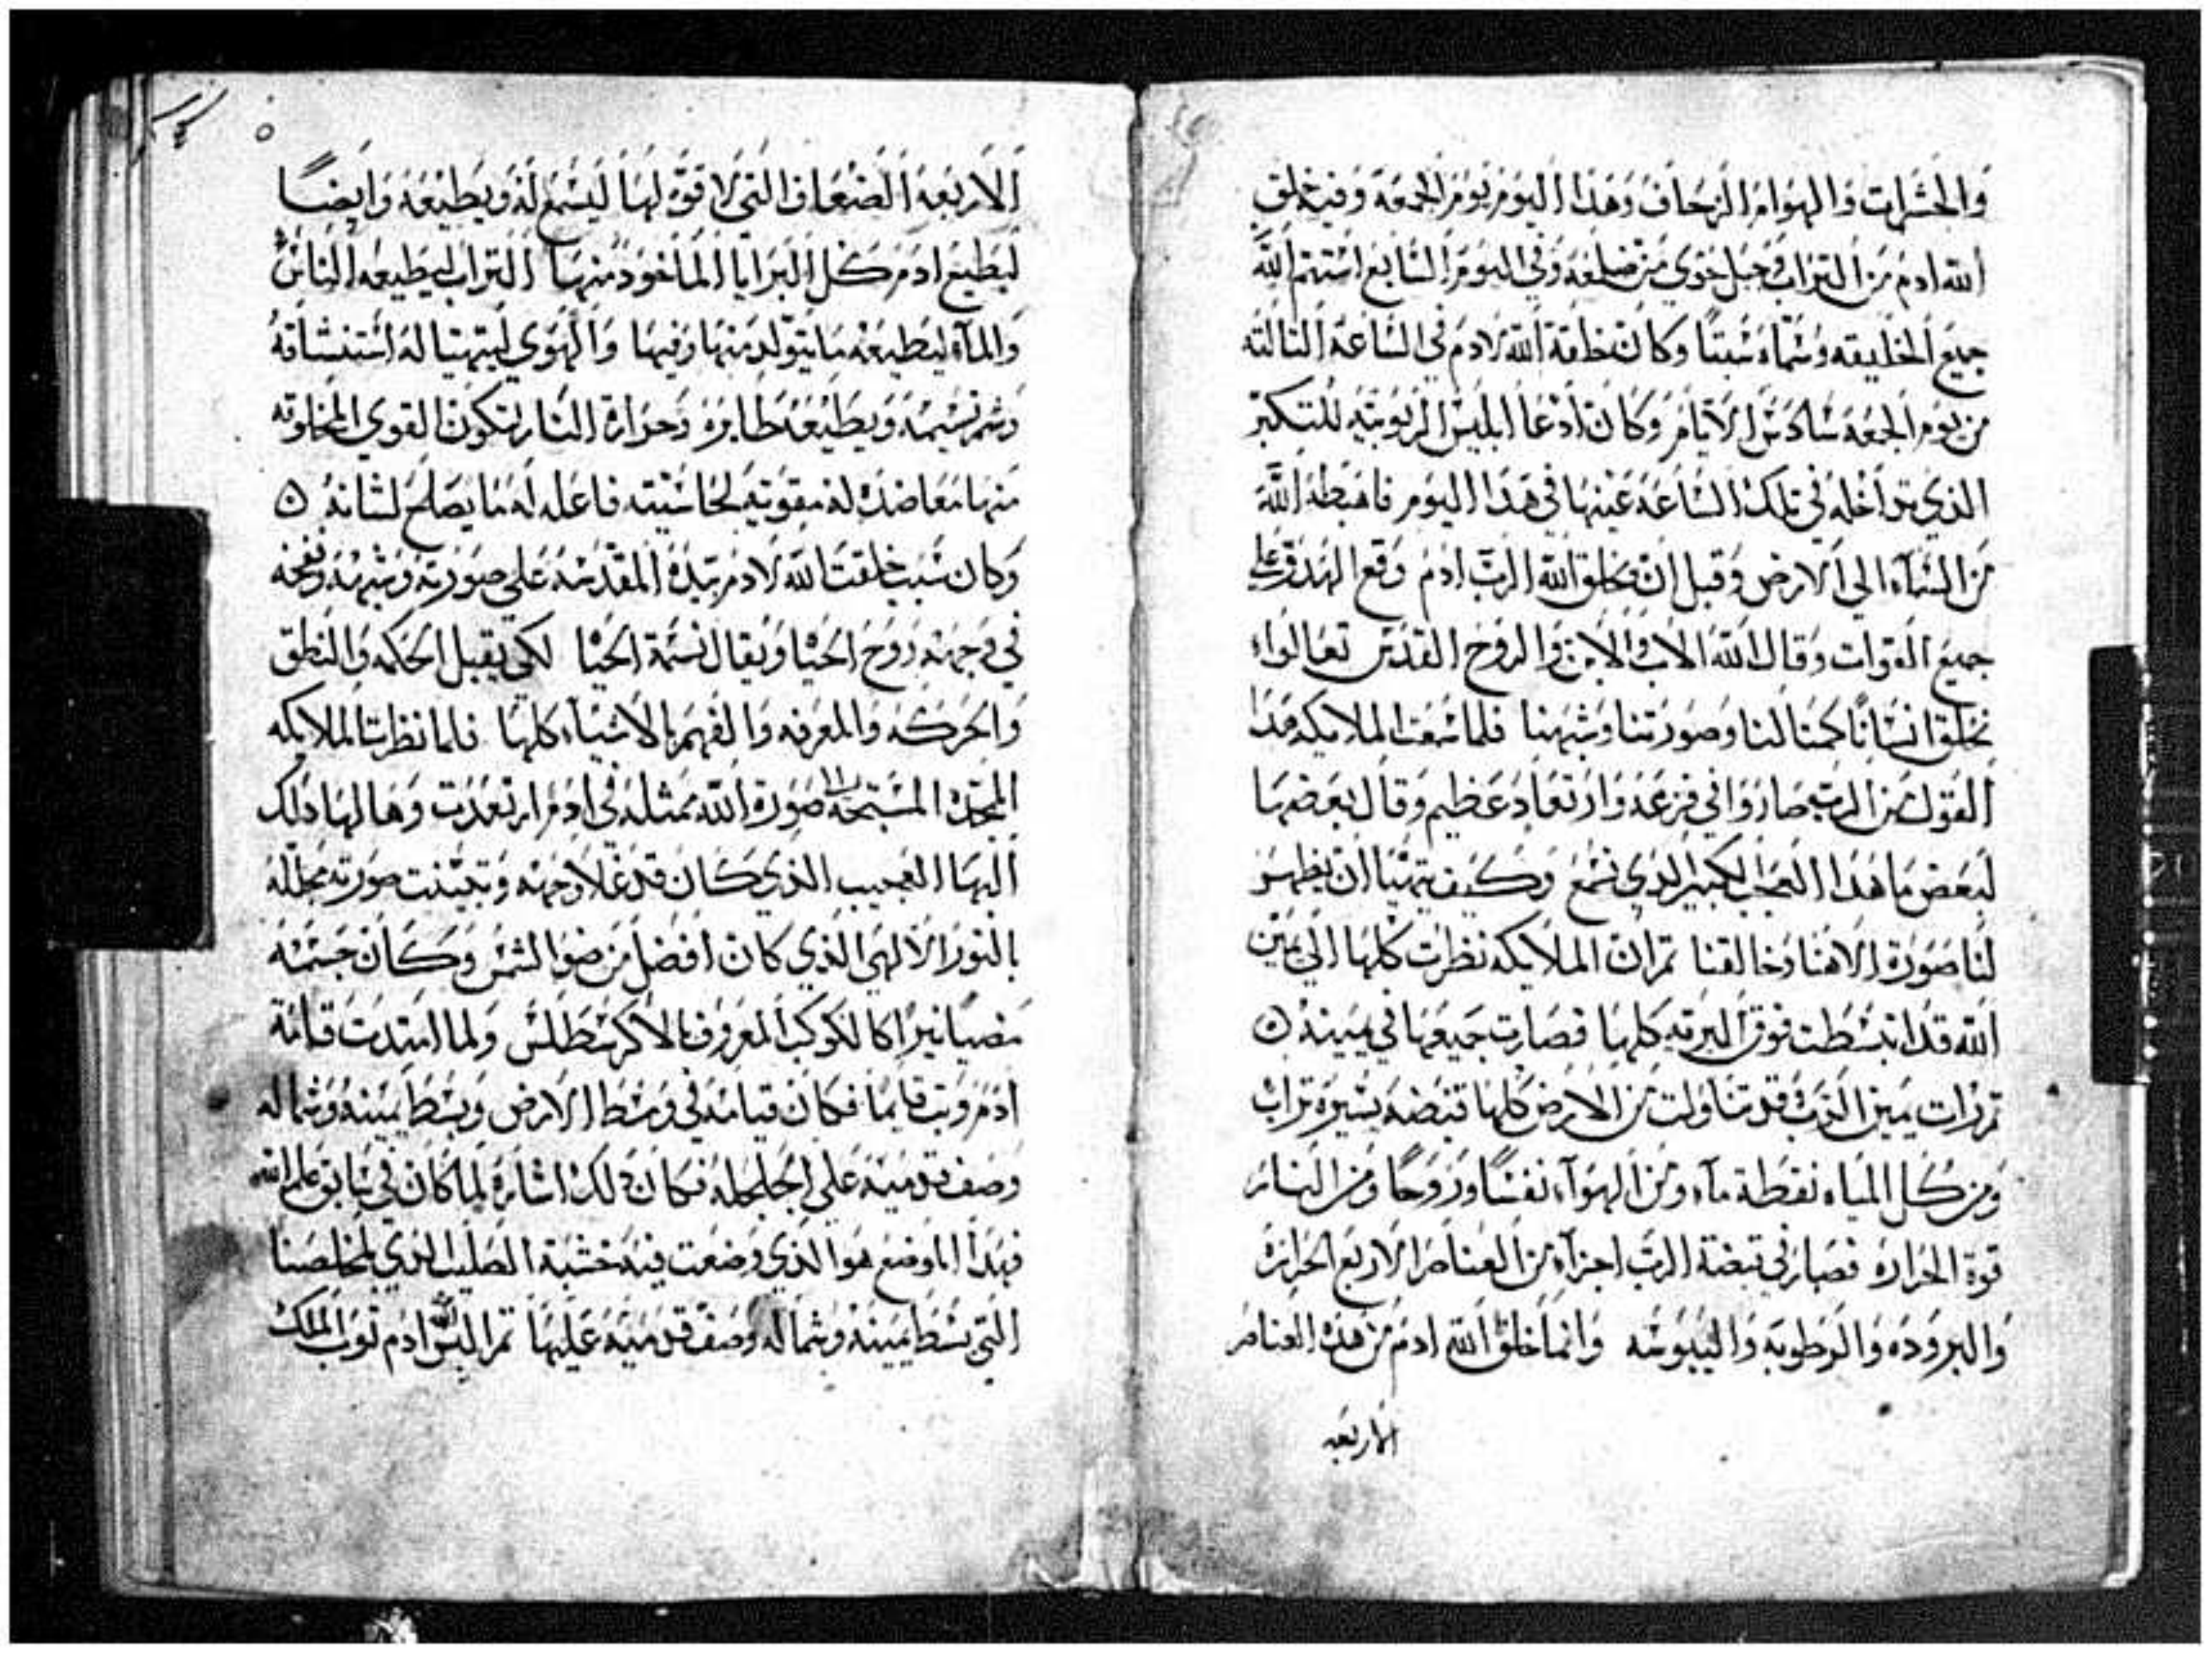 والحشرات والهوام الزحاف وهذا اليوم يوم الجمعة وفيه خلق
الله ادم من التراب وجبل حوي من ضلعه وفي اليوم السابع استتم الله
جميع الخليقه وسماه سبتا وكانت خلقة الله لادم في الساعة الثالثه
من يوم الجمعه سادس الايام وكان ادعا ابليس الربوبيه للتكبر
الذي داخله في تلك الساعة عينها في هدا اليوم فاهبطه الله
من السماء الي الارض وقبل ان يخلق الله الرب ادم وقع الهدو علي
جميع القوات وقال الله الاب والابن والروح القدس تعالوا
نخلق انسانا كمثالنا وصورتنا وشبهنا فلما سمعت الملايكه هدا
القول من الرب صاروا في فزعه وارتعاد عظيم وقال بعضها
لبعض ما هدا العجب الكبير الدي نسمع وكيف يتهيا ان يظهر
لنا صورة الاهنا وخالقنا تم ان الملايكه نظرت كلها الي يمين
الله قد انبسطت فوق البريه كلها فصارت جميعها في يمينه ه
تم رات يمين الرب قد تناولت من الارض كلها قبضه يسيرة تراب
ومن كل المياه نقطة ماء ومن الهوآء نفسا وروحا ومن النار
قوة الحراره فصار في قبضة الرب اجزاء من العناصر الاربع الحراره
والبروده والرطوبه واليبوسه وانما خلق الله ادم من هده العناصر
الاربعه
ه
الاربعه الضعاف التي لا قوة لها ليسمع له ويطيعه وايضا
ليطيع ادم كل البرايا الماخوده منها التراب ليطيعه الناس
والمآء ليطيعه ما يتولد منها وفيها والهوي ليتهيا له استنشاقه
وشم نسيمه ويطيعه طايره وحرارة النار لتكون القوي المخلوقه
منها معاضدة له مقويه لحاسيته فاعله له ما يصلح لشانه ه
وكان سبب خلقت الله لادم بيده المقدسه علي صورته وشبهه ونفخه
في وجهه روح الحيا ويقال نسمة الحيا لكي يقبل الحكمه والنطق
والحركه والمعرفه والفهم بالاشياء كلها فلما نظرت الملايكه
المجده المسبحه صورة الله ممثله في ادم ارتعدت وهالها دلك
البها العجيب الذي كان قد علا وجهه وتبينت صورته مجلله
بالنور الالهي الذي كان افضل من ضوا الشمس وكان جسمه
مضيا نيرا كالكوكب المعروف بالاكرسطلس ولما امتدت قامة
ادم وتب قايما فكان قيامه في وسط الارض وبسط يمينه وشماله
وصف قدميه على الجلجله فكان دلك اشاره لما كان في سابق علم الله
فهدا الموضع هو الذي وضعت فيه خشبة الصليب الذي لمخلصنا
التي بسط يمينه وشماله وصف قدميه عليها تم البس الله ادم توب الملك